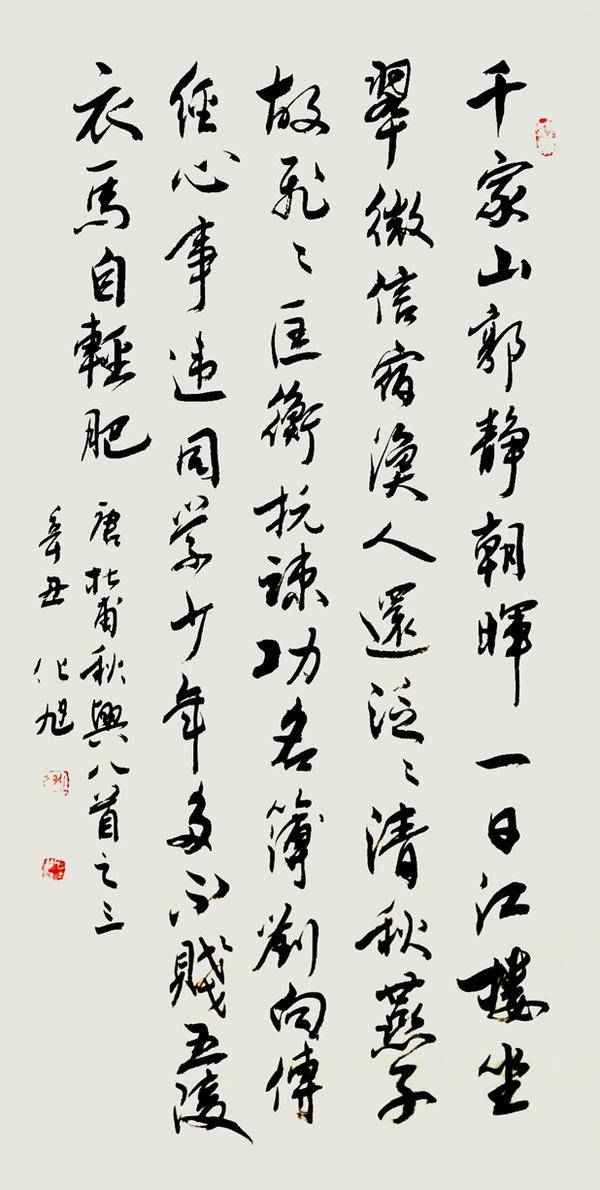 千家山郭静朝暉一日江樓坐
翠微信宿漁人還泛〻清秋燕子
故飛〻匡衡抗疎功名簿劉向傳
經心事違同學少年多不賤五陵
衣馬自輕肥
唐杜甫秋興八首之三
辛丑 化旭